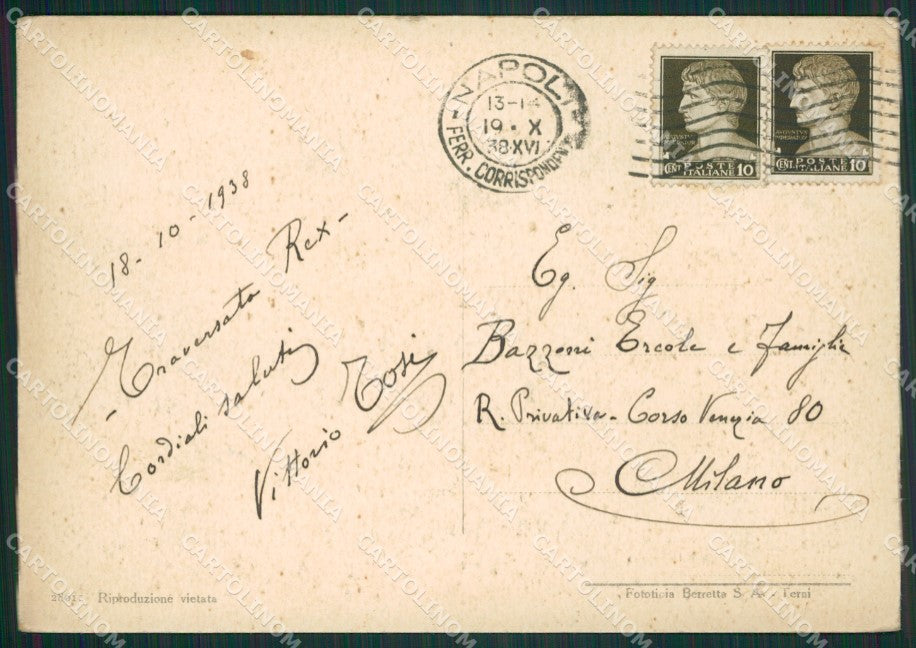 NAPOLI
13-14
19 · X
38·XVI
FERR. CORRISPONDENZE
AVGVSTVS
CENT. POSTE ITALIANE 10
AVGVSTVS
CENT. POSTE ITALIANE 10
18-10-1938
- Traversata Rex -
Cordiali saluti
Vittorio Tosi
Eg. Sig
Bazzoni Ercole e Famiglia
R. Privativa - Corso Venezia 80
Milano
Riproduzione vietata
Fototipia Berretta S. A. - Terni
CARTOLINOMANIA